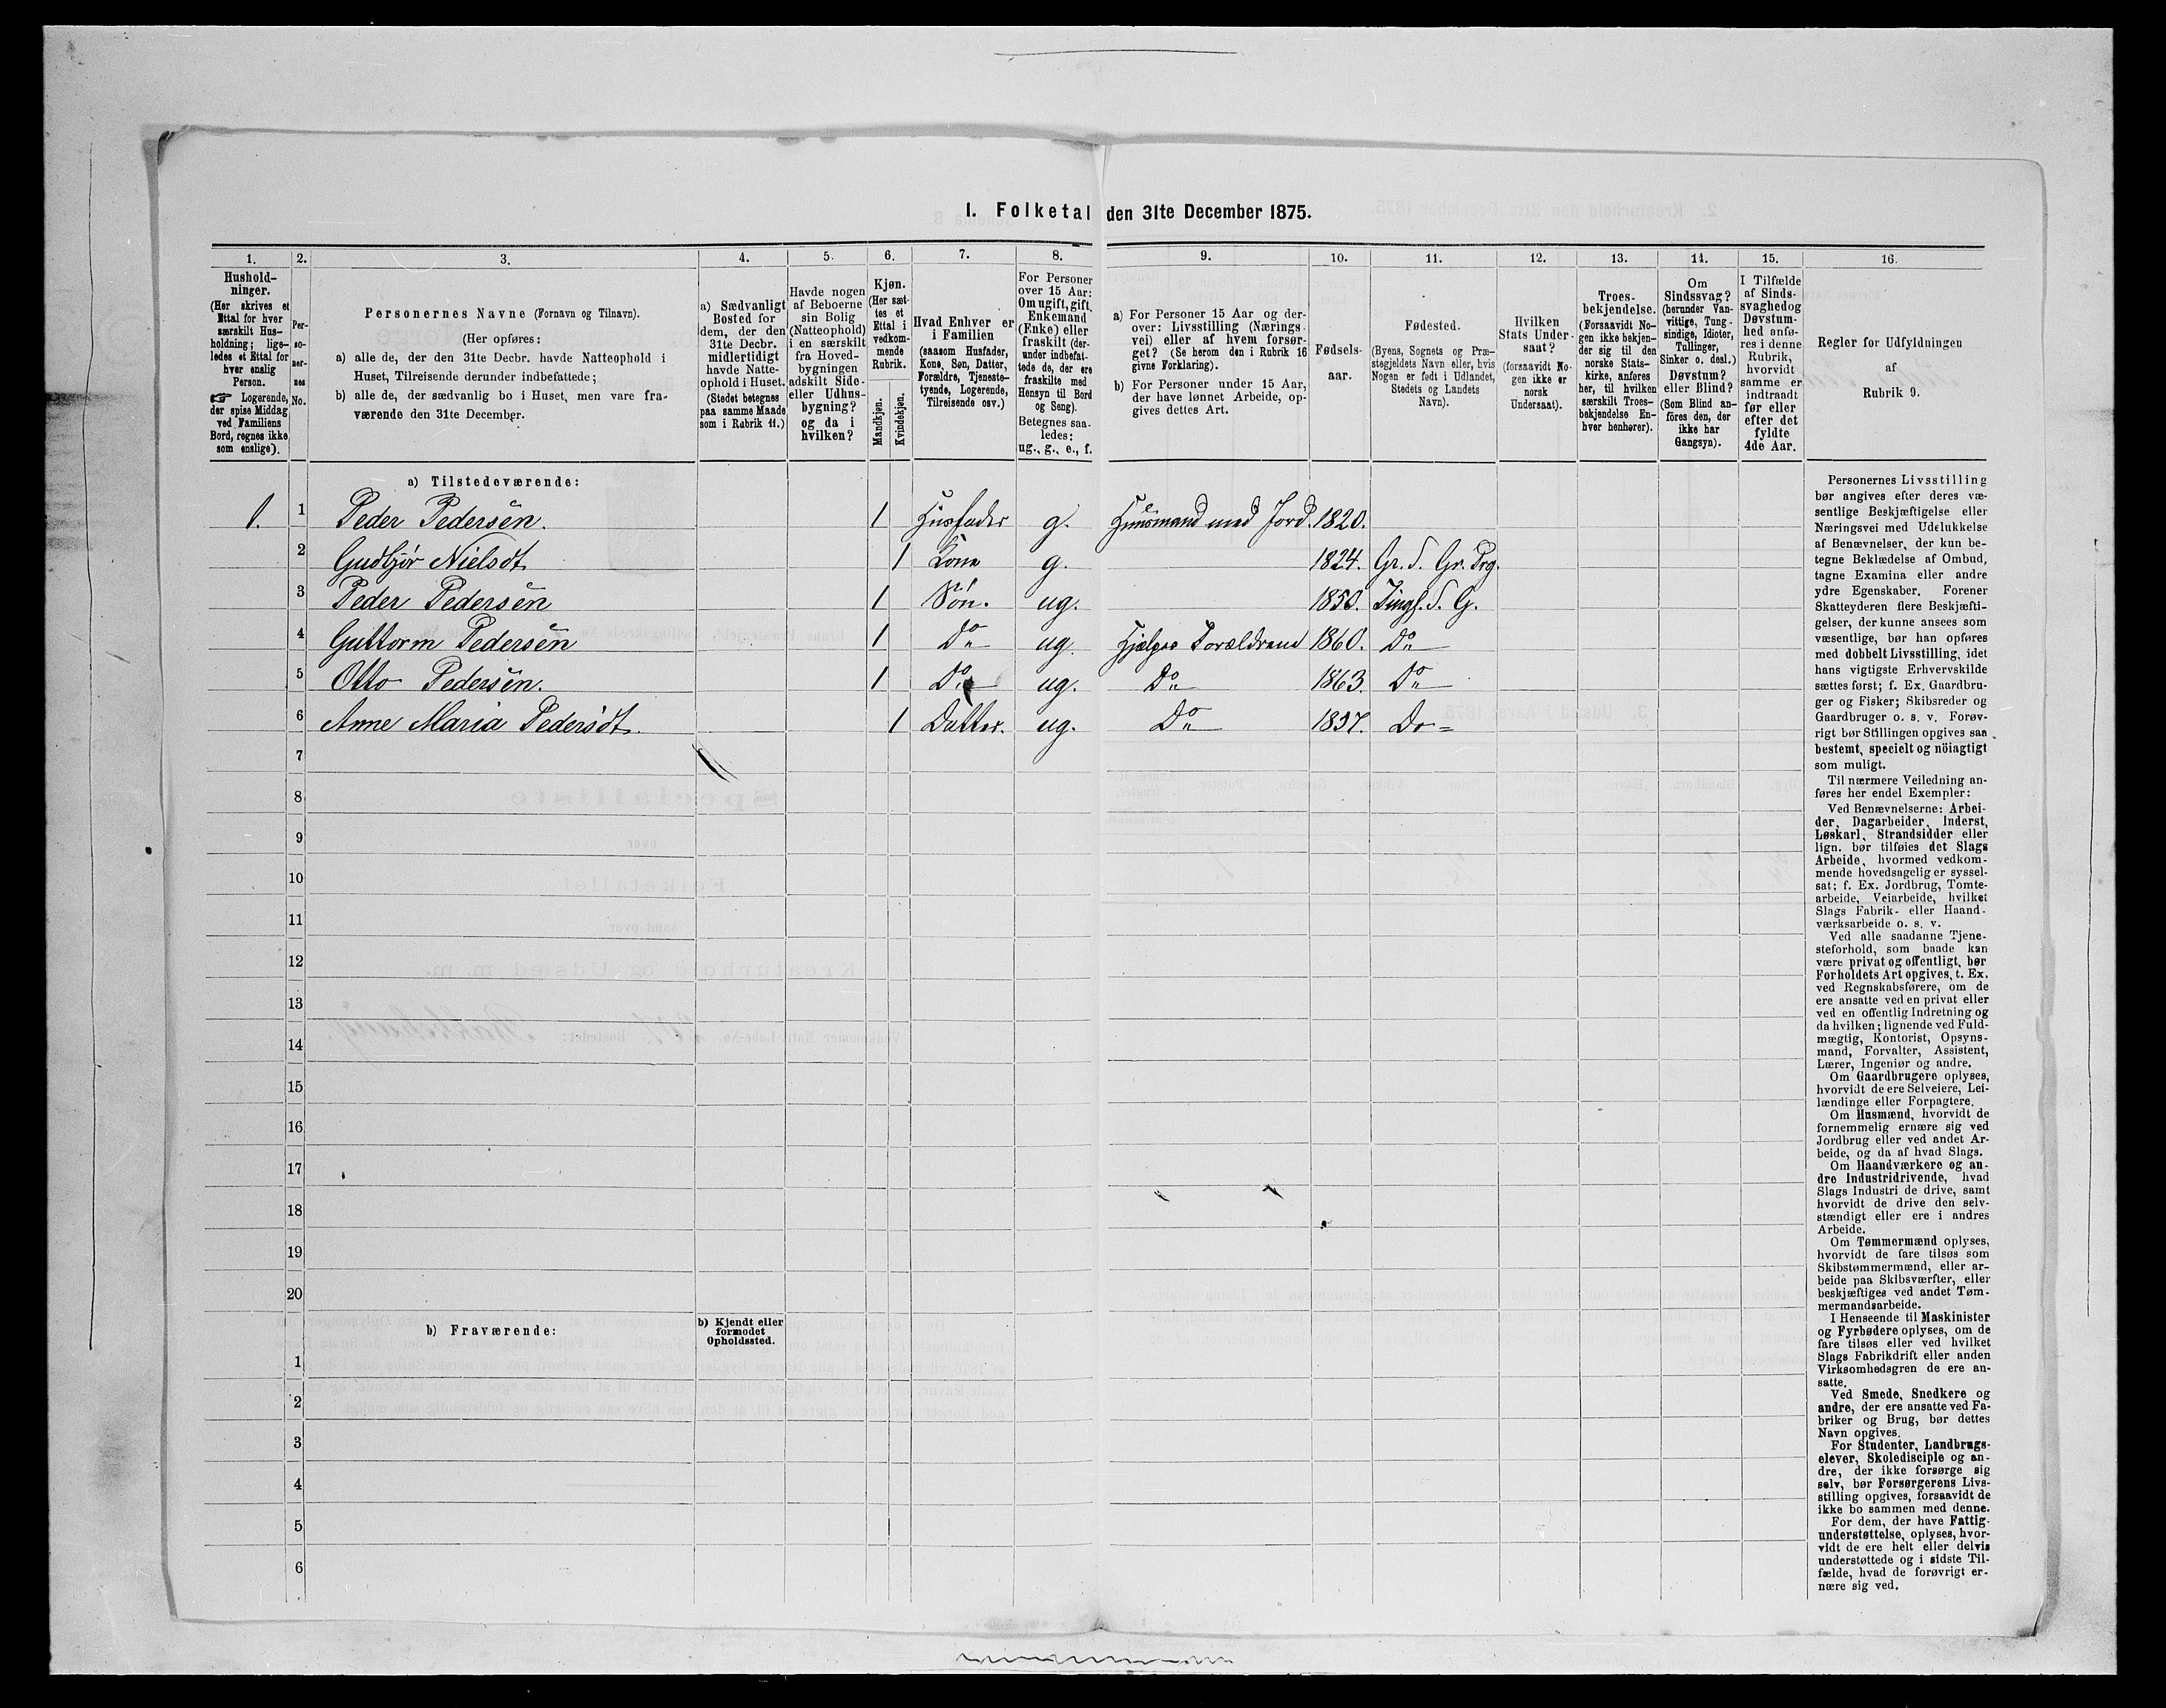 I. Folketal den 31te December 1875.
1.
Hushold-
ninger.
(Her skrives et
Ettal for hver
særskilt Hus-
holdning; lige-
ledes et Ettal for
hver enslig
Person.
☞ Logerende,
der spise Middag
ved Familiens
Bord, regnes ikke
som enslige).
2.
Per-
so-
ner-
nes
No.
3.
Personernes Navne (Fornavn og Tilnavn).
(Her opføres:
a) alle de, der den 31te Decbr. havde Natteophold i
Huset, Tilreisende derunder indbefattede;
b) alle de, der sædvanlig bo i Huset, men vare fra-
værende den 31te December.
4.
a) Sædvanligt
Bosted for
dem, der den
31te Decbr.
midlertidigt
havde Natte-
ophold i Huset.
(Stedet betegnes
paa samme Maade
som i Rubrik 11.)
5.
Havde nogen
af Beboerne
sin Bolig
(Natteophold)
i en særskilt
fra Hoved-
bygningen
adskilt Side-
eller Udhus-
bygning?
og da i
hvilken?
6.
Kjøn.
(Her sæt-
tes et
Ettal i
vedkom-
mende
Rubrik.
Mandkjøn.
Kvindekjøn.
7.
Hvad Enhver er
i Familien
(saasom Husfader,
Kone, Søn, Datter,
Forældre, Tjeneste-
tyende, Logerende,
Tilreisende osv.)
8.
For Personer
over 15 Aar:
Om ugift, gift,
Enkemand
(Enke) eller
fraskilt (der-
under indbefat-
tede de, der ere
fraskilte med
Hensyn til Bord
og Seng).
Betegnes saa-
ledes:
ug., g., e., f.
9.
a) For Personer 15 Aar og der-
over: Livsstilling (Nærings-
vei) eller af hvem forsør-
get? (Se herom den i Rubrik 16
givne Forklaring).
b) For Personer under 15 Aar,
der have lønnet Arbeide, op-
gives dettes Art.
10.
Fødsels-
aar.
11.
Fødested.
(Byens, Sognets og Præ-
stegjeldets Navn eller, hvis
Nogen er født i Udlandet,
Stedets og Landets
Navn).
12.
Hvilken
Stats Under-
saat?
(forsaavidt No-
gen ikke er
norsk
Undersaat).
13.
Troes-
bekjendelse.
(Forsaavidt No-
gen ikke bekjen-
der sig til den
norske Stats-
kirke, anføres
her, til hvilken
særskilt Troes-
bekjendelse En-
hver henhører).
14.
Om
Sindssvag?
(herunder Van-
vittige, Tung-
sindige, Idioter,
Tullinger,
Sinker o. desl.)
Døvstum?
eller Blind?
(Som Blind an-
föres den, der
ikke har
Gangsyn).
15.
I Tilfælde
af Sinds-
svaghed og
Døvstum-
hed anfø-
res i denne
Rubrik,
hvorvidt
samme er
indtraadt
før eller
efter det
fyldte
4de Aar.
16.
Regler for Udfyldningen
af
Rubrik 9.
a) Tilstedeværende:
1. 1 Peder Pedersen. 1 Husfader g. Huusmand med Jord. 1820.
2 Gudbjør Nielsdt. 1 Kone g. 1824. Gr. S. Gr. Prg.
3 Peder Pedersen 1 Søn. ug. 1850. Tingl. S. G.
4 Guttorm Pedersen 1 Do ug. Hjælper Forældrene 1860. Do
5 Otto Pedersen. 1 Do ug. Do 1863. Do
6 Anne Maria Pedersdt. 1 Datter. ug. Do 1857. Do
7
8
9
10
11
12
13
14
15
16
17
18
19
20
b) Fraværende:
b) Kjendt eller
formodet
Opholdssted.
1
2
3
4
5
6
Personernes Livsstilling
bør angives efter deres væ-
sentlige Beskjæftigelse eller
Næringsvei med Udelukkelse
af Benævnelser, der kun be-
tegne Beklædelse af Ombud,
tagne Examina eller andre
ydre Egenskaber. Forener
Skatteyderen flere Beskjæfti-
gelser, der kunne ansees som
væsentlige, bør han opføres
med dobbelt Livsstilling, idet
hans vigtigste Erhvervskilde
sættes først; f. Ex. Gaardbru-
ger og Fisker; Skibsreder og
Gaardbruger o. s. v. Forøv-
rigt bør Stillingen opgives saa
bestemt, specielt og nöiagtigt
som muligt.
Til nærmere Veiledning an-
føres her endel Exempler:
Ved Benævnelserne: Arbei-
der, Dagarbeider, Inderst,
Løskarl, Strandsidder eller
lign. bør tilføies det Slags
Arbeide, hvormed vedkom-
mende hovedsagelig er syssel-
sat; f. Ex. Jordbrug, Tomte-
arbeide, Veiarbeide, hvilket
Slags Fabrik- eller Haand-
værksarbeide o. s. v.
Ved alle saadanne Tjene-
steforhold, som baade kan
være privat og offentligt, bør
Forholdets Art opgives, t. Ex.
ved Regnskabsførere, om de
ere ansatte ved en privat eller
ved en offentlig Indretning og
da hvilken; lignende ved Fuld-
mægtig, Kontorist, Opsyns-
mand, Forvalter, Assistent,
Lærer, Ingeniør og andre.
Om Gaardbrugere oplyses,
hvorvidt de ere Selveiere, Lei-
lændinge eller Forpagtere.
Om Husmænd, hvorvidt de
fornemmelig ernære sig ved
Jordbrug eller ved andet Ar-
beide, og da af hvad Slags.
Om Haandværkere og an-
dre Industridrivende, hvad
Slags Industri de drive, samt
hvorvidt de drive den selv-
stændigt eller ere i andres
Arbeide.
Om Tømmermænd oplyses,
hvorvidt de fare tilsøs som
Skibstømmermænd, eller ar-
beide paa Skibsværfter, eller
beskjæftiges ved andet Tøm-
mermandsarbeide.
I Henseende til Maskinister
og Fyrbødere oplyses, om de
fare tilsøs eller ved hvilket
Slags Fabrikdrift eller anden
Virksomhedsgren de ere an-
satte.
Ved Smede, Snedkere og
andre, der ere ansatte ved Fa-
briker og Brug, bør dettes
Navn opgives.
For Studenter, Landbrugs-
elever, Skoledisciple og an-
dre, der ikke forsørge sig
selv, bør Forsørgerens Livs-
stilling opgives, forsaavidt de
ikke bo sammen med denne.
For dem, der have Fattig-
understøttelse, oplyses, hvor-
vidt de ere helt eller delvis
understøttede og i sidste Til-
fælde, hvad de forøvrigt er-
nære sig ved.